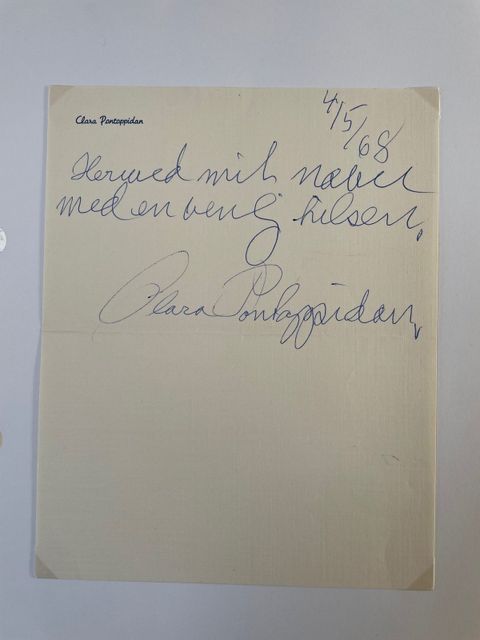 Clara Pontoppidan
4/5/68
Herved mit navn
med en venlig hilsen,
Clara Pontoppidan,